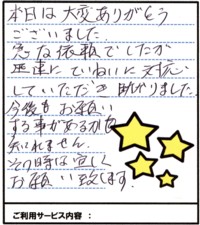 本日は大変ありがとう
ございました。
急な依頼でしたが
迅速にていねいに対応
していただき助かりました。
今後もお願い
する事があるかも
知れません。
その時は宜しく
お願い致します。
ご利用サービス内容：